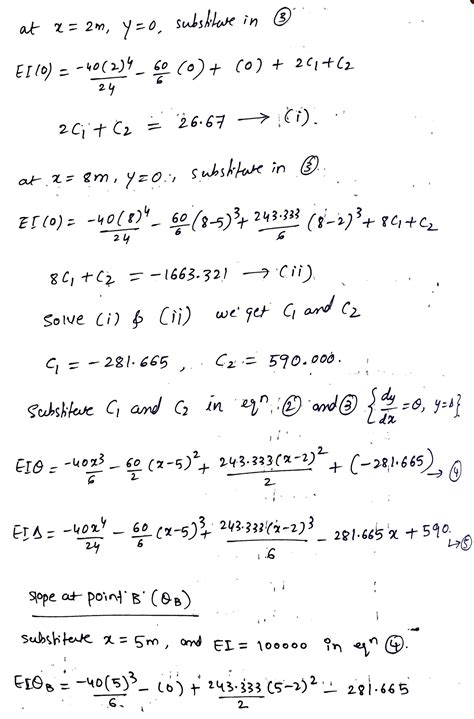 at x = 2m, y=0, substitute in ③
EI(0) = -40(2)^4/24 - 60/6 (0) + (0) + 2C₁+C₂
2C₁ + C₂ = 26.67 → (i).
at x = 8m, y=0, substitute in ③.
EI(0) = -40(8)^4/24 - 60/6 (8-5)^3 + 243.333/6 (8-2)^3 + 8C₁+C₂
8C₁ + C₂ = -1663.321 → (ii)
Solve (i) & (ii) we get C₁ and C₂
C₁ = -281.665, C₂ = 590.000.
Substitute C₁ and C₂ in eqⁿ ② and ③ {dy/dx = θ, y=Δ}
EIθ = -40x^3/6 - 60/2 (x-5)^2 + 243.333(x-2)^2/2 + (-281.665) → ④
EIΔ = -40x^4/24 - 60/6 (x-5)^3 + 243.333(x-2)^3/6 - 281.665x + 590. → ⑤
slope at point B (θ_B)
substitute x = 5m, and EI = 100000 in eqⁿ ④.
EIθ_B = -40(5)^3/6 - (0) + 243.333(5-2)^2/2 - 281.665